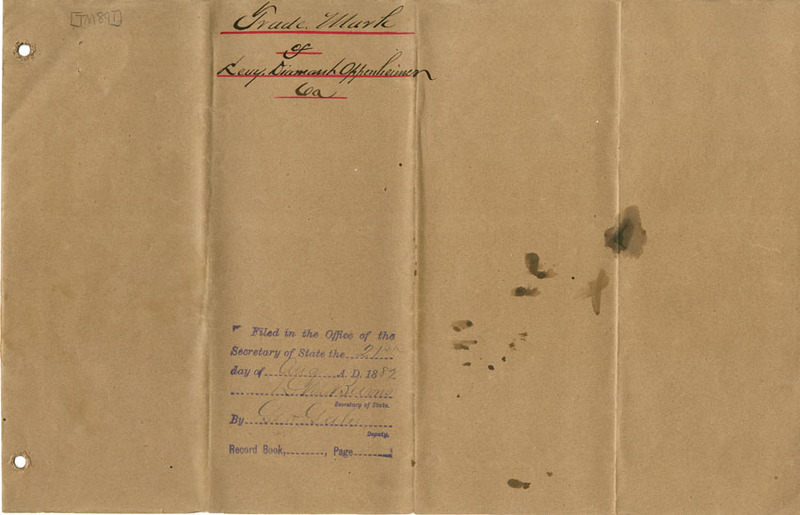 [TM891]
Trade Mark
of
Levy, Diamant Oppenheimer
Co
Filed in the Office of the
Secretary of State the 27th
day of Aug A. D. 1889
Secretary of State.
By Geo
Deputy.
Record Book, Page